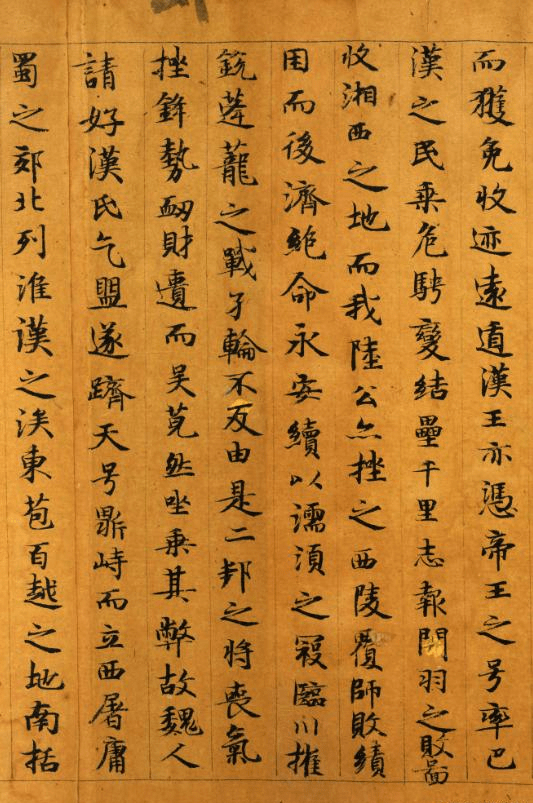 而獲免收迹遠遁漢王亦憑帝王之号率巴
漢之民乗危騁變結壘千里志報關羽之敗啚
收湘西之地而我陸公亦挫之西陵覆師敗績
困而後濟絶命永安續以濡湏之寇臨川摧
銳蓬蘢之戰孑輪不反由是二邦之將喪氣
挫鋒勢衂財遺而吴莧然坐乗其弊故魏人
請好漢氏乞盟遂躋天号鼎峙而立西屠庸
蜀之郊北列淮漢之涘東苞百越之地南括